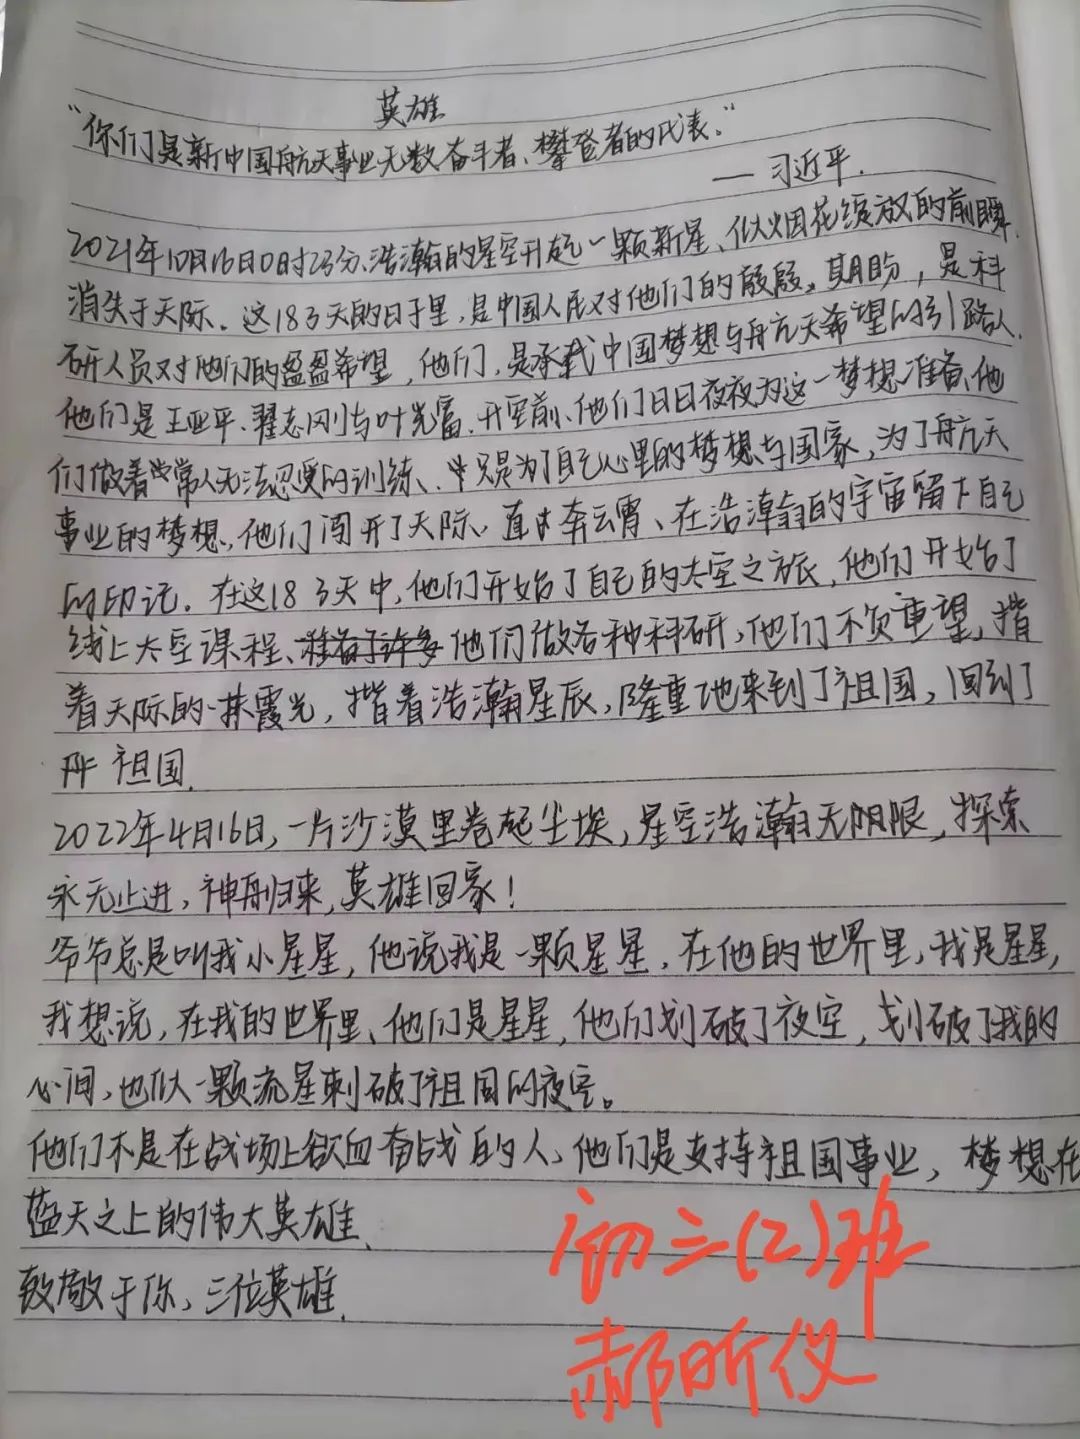 英雄
“你们是新中国航天事业无数奋斗者、攀登者的代表。”
—习近平.
2021年10月16日0时23分、浩瀚的星空升起一颗新星、似烟花绽放的前瞬.
消失于天际. 这183天的日子里,是中国人民对他们的殷殷。期盼,是科
研人员对他们的盈盈希望,他们,是承载中国梦想与航天希望的引路人.
他们是王亚平、翟志刚与叶光富.升空前、他们日日夜夜为这一梦想准备,他
们做着常人无法忍受的训练、只是为了自己心里的梦想与国家,为了航天
事业的梦想,他们闯开了天际、直奔云霄、在浩瀚的宇宙留下自己
的印记. 在这183天中,他们开始了自己的太空之旅,他们开始了
线上太空课程、准备了许多他们做各种科研,他们不负重望,揩
着天际的一抹霞光,揩着浩瀚星辰,隆重地来到了祖国,回到了
祖国.
2022年4月16日,一片沙漠里卷起尘埃,星空浩瀚无限,探索
永无止进,神舟归来,英雄回家!
爷爷总是叫我小星星,他说我是一颗星星,在他的世界里,我是星星,
我想说,在我的世界里、他们是星星,他们划破了夜空,划破了我的
心间,也似一颗流星刺破了祖国的夜空。
他们不是在战场上欲血奋战的人、他们是支持祖国事业,梦想在
蓝天之上的伟大英雄、
致敬于你、三位英雄.
初三(2)班
郝昕仪